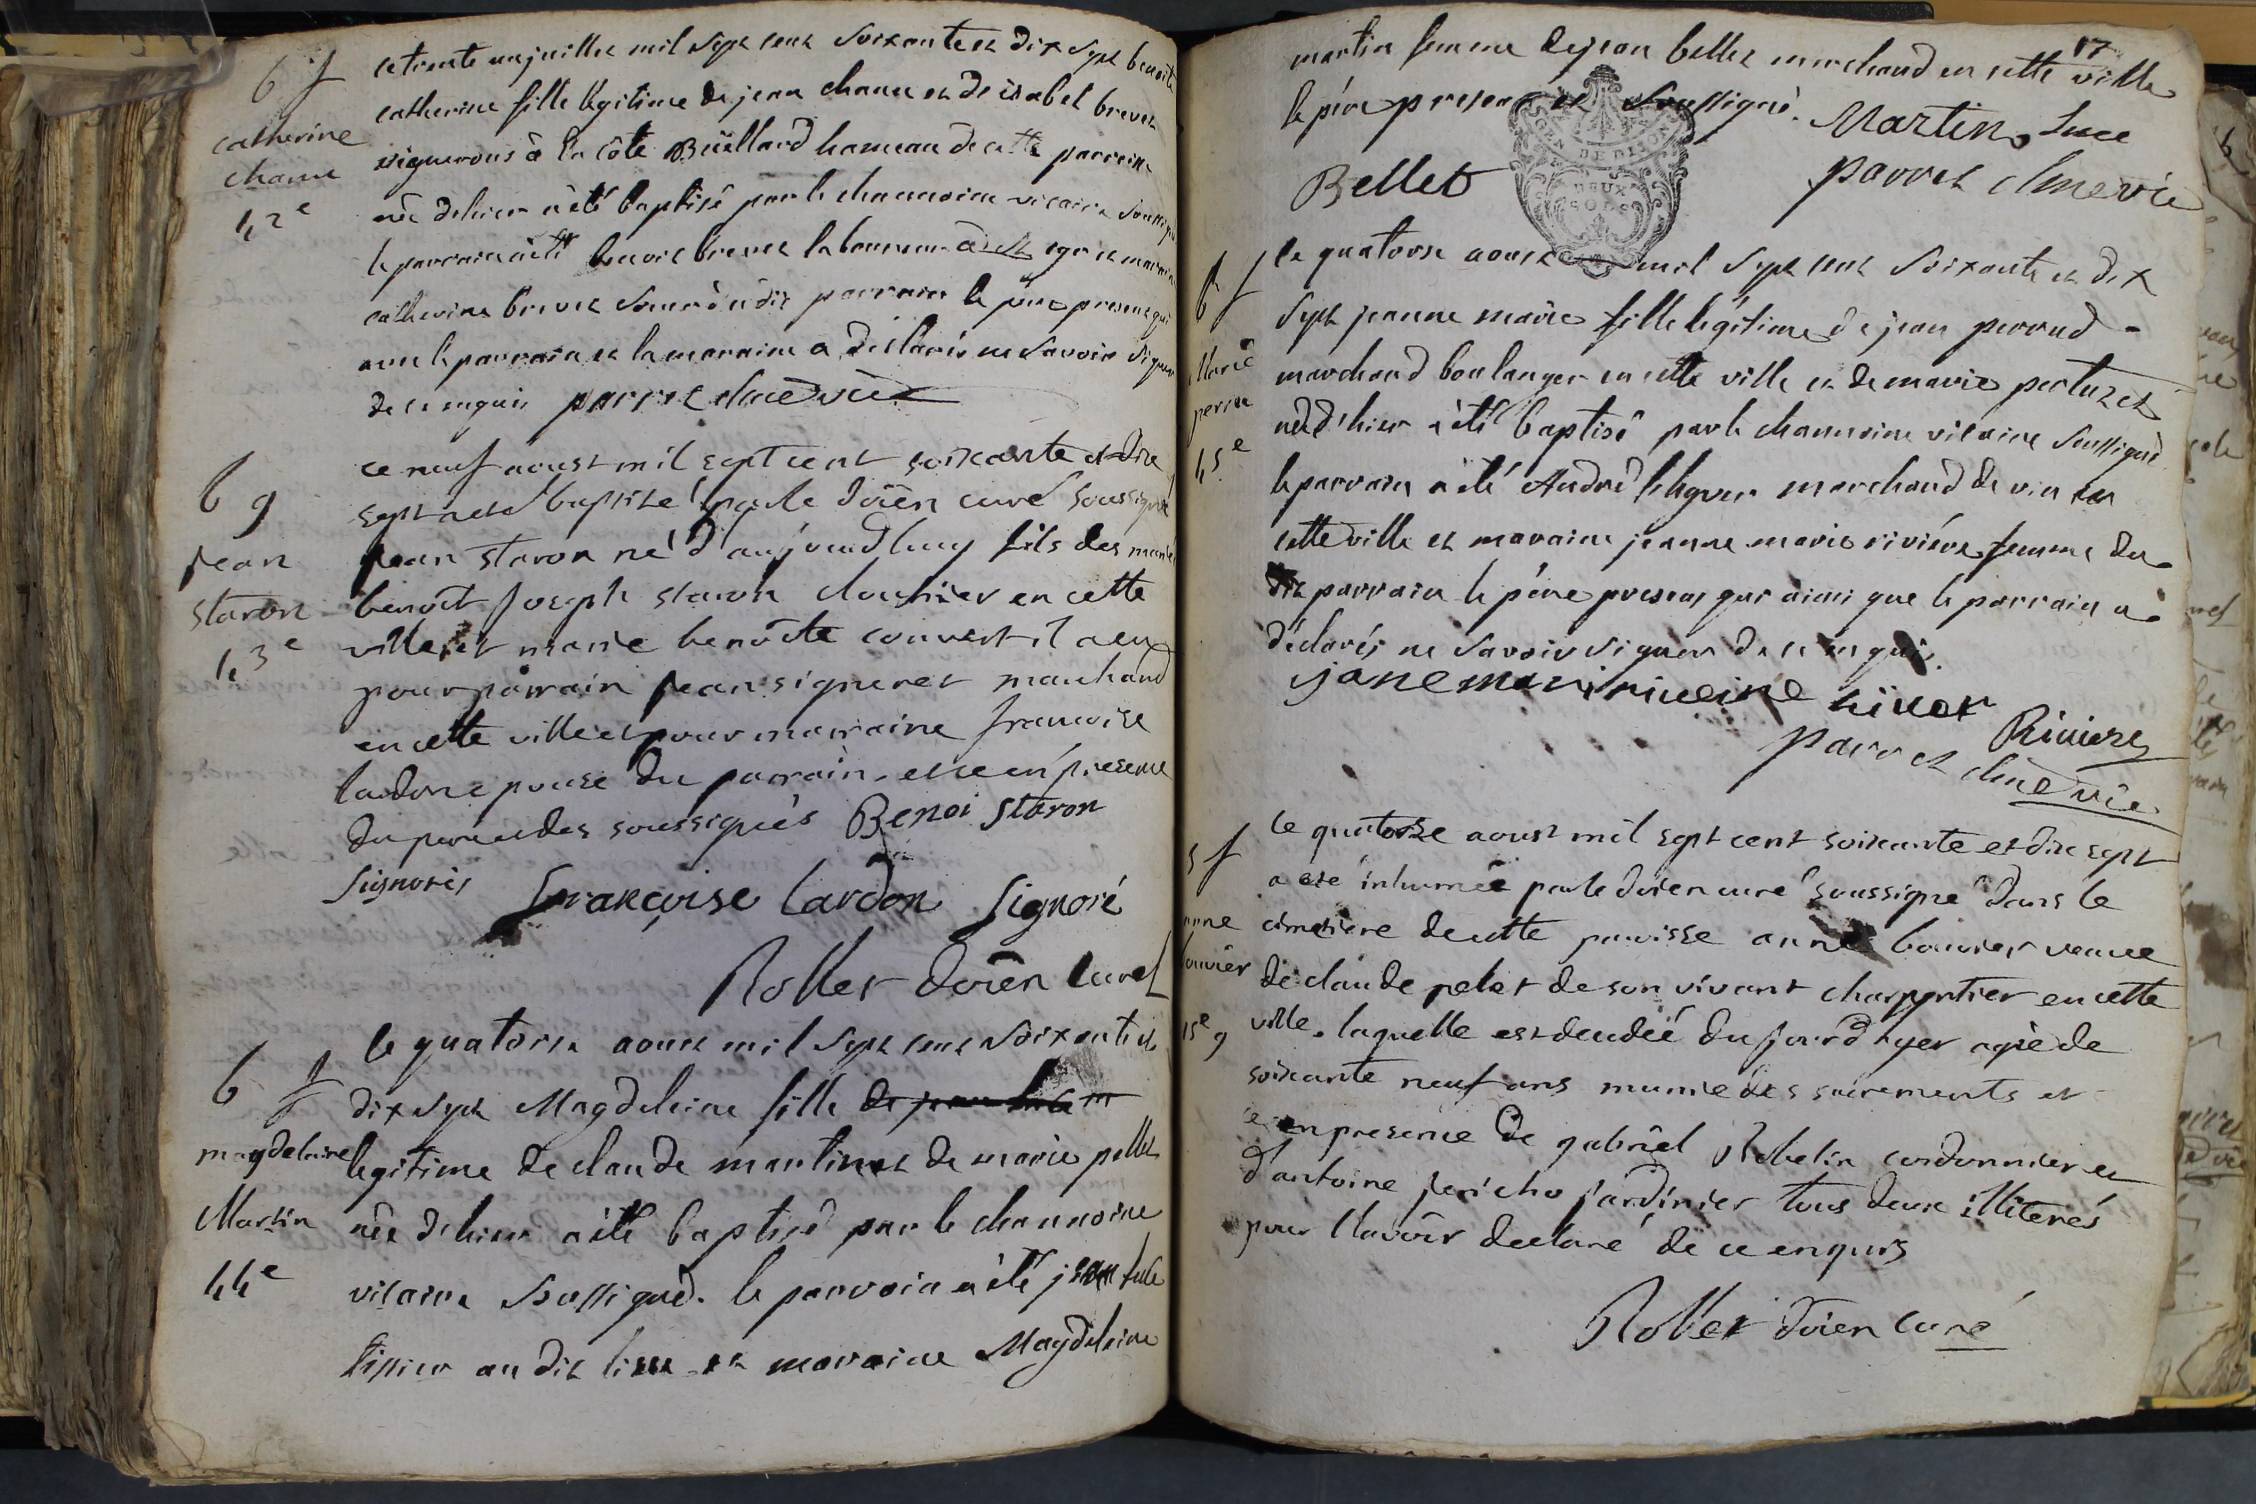 b f
catherine
chanu
42e
ce trente un juillet mil sept cent soixante et dix sept benoite
catherine fille legitime de jean chanu et de isabel brevet
vignerons à la côte Buëllard hameau de cette parroisse
née dehier a été baptisé par le channoine vicaire soussigné
le parrain a été benoit brevet laboureur à et maraine
catherine brevet soeur du dit parrain le père present qui
avec le parrain et la maraine a déclarés ne savoir signer
de ce enquis parret chne vic
b g
jean
staron
43e
ce neuf aoust mil sept cent soixante et dix
sept a été baptisé par le doïen curé soussigné
jean staron né d'aujourdhuy fils des mariés
benoît joseph staron cloutier en cette
ville et marie benoîte convert il a eu
pour parrain jean signeret marchand
en cette ville et pour marraine francoise
lardon epouse du parrain, et ce en presence
du pere et des soussignés Benoi Staron
signoris Françoise lardon Signoré
Rollet doïen curé
b f
magdelaine
Martin
44e
le quatorse aoust mil sept cent soixante et
dix sept Magdeleine fille de jean
legitime de claude martin et de marie pellet
née dehier a été baptisé par le channoine
vicaire soussigné. le parrain a été jean luce
tissier au dit lieu et maraine Magdeleine
17
martin femme de jean bellet marchand en cette ville
le père present et soussigné. Martin Luce
Bellet parret chne vic
GEN DE DIJON
DEUX
SOLS
b f
Marie
perru
45e
le quatorse aoust mil sept cent soixante et dix
sept jeanne marie fille légitime de jean perrud
marchand boulanger en cette ville et de marie pertuzet
née d'hier a été baptisé par le channoine vicaire soussigné
le parrain a été André marchand de vin en
cette ville et maraine jeanne marie rivière femme du
dit parrain le père present qui ainsi que le parrain a
déclarés ne savoir signer de ce enquis.
jane mari riveire
Riviere
parret chne vic
s f
anne
bouvier
15e g
le quatorze aoust mil sept cent soixante et dix sept
a été inhumée par le doïen curé soussigné dans le
cimetiere de cette paroisse anne bouvier veuve
de claude pelet de son vivant charpentier en cette
ville, laquelle est decedée du jour d'hyer agée de
soixante neuf ans munie des sacrements et
ce en presence de gabriel Robelin cordonnier et
d'antoine jericho jardinier tous deux illiterés
pour l'avoir declaré de ce enquis
Rollet doïen curé